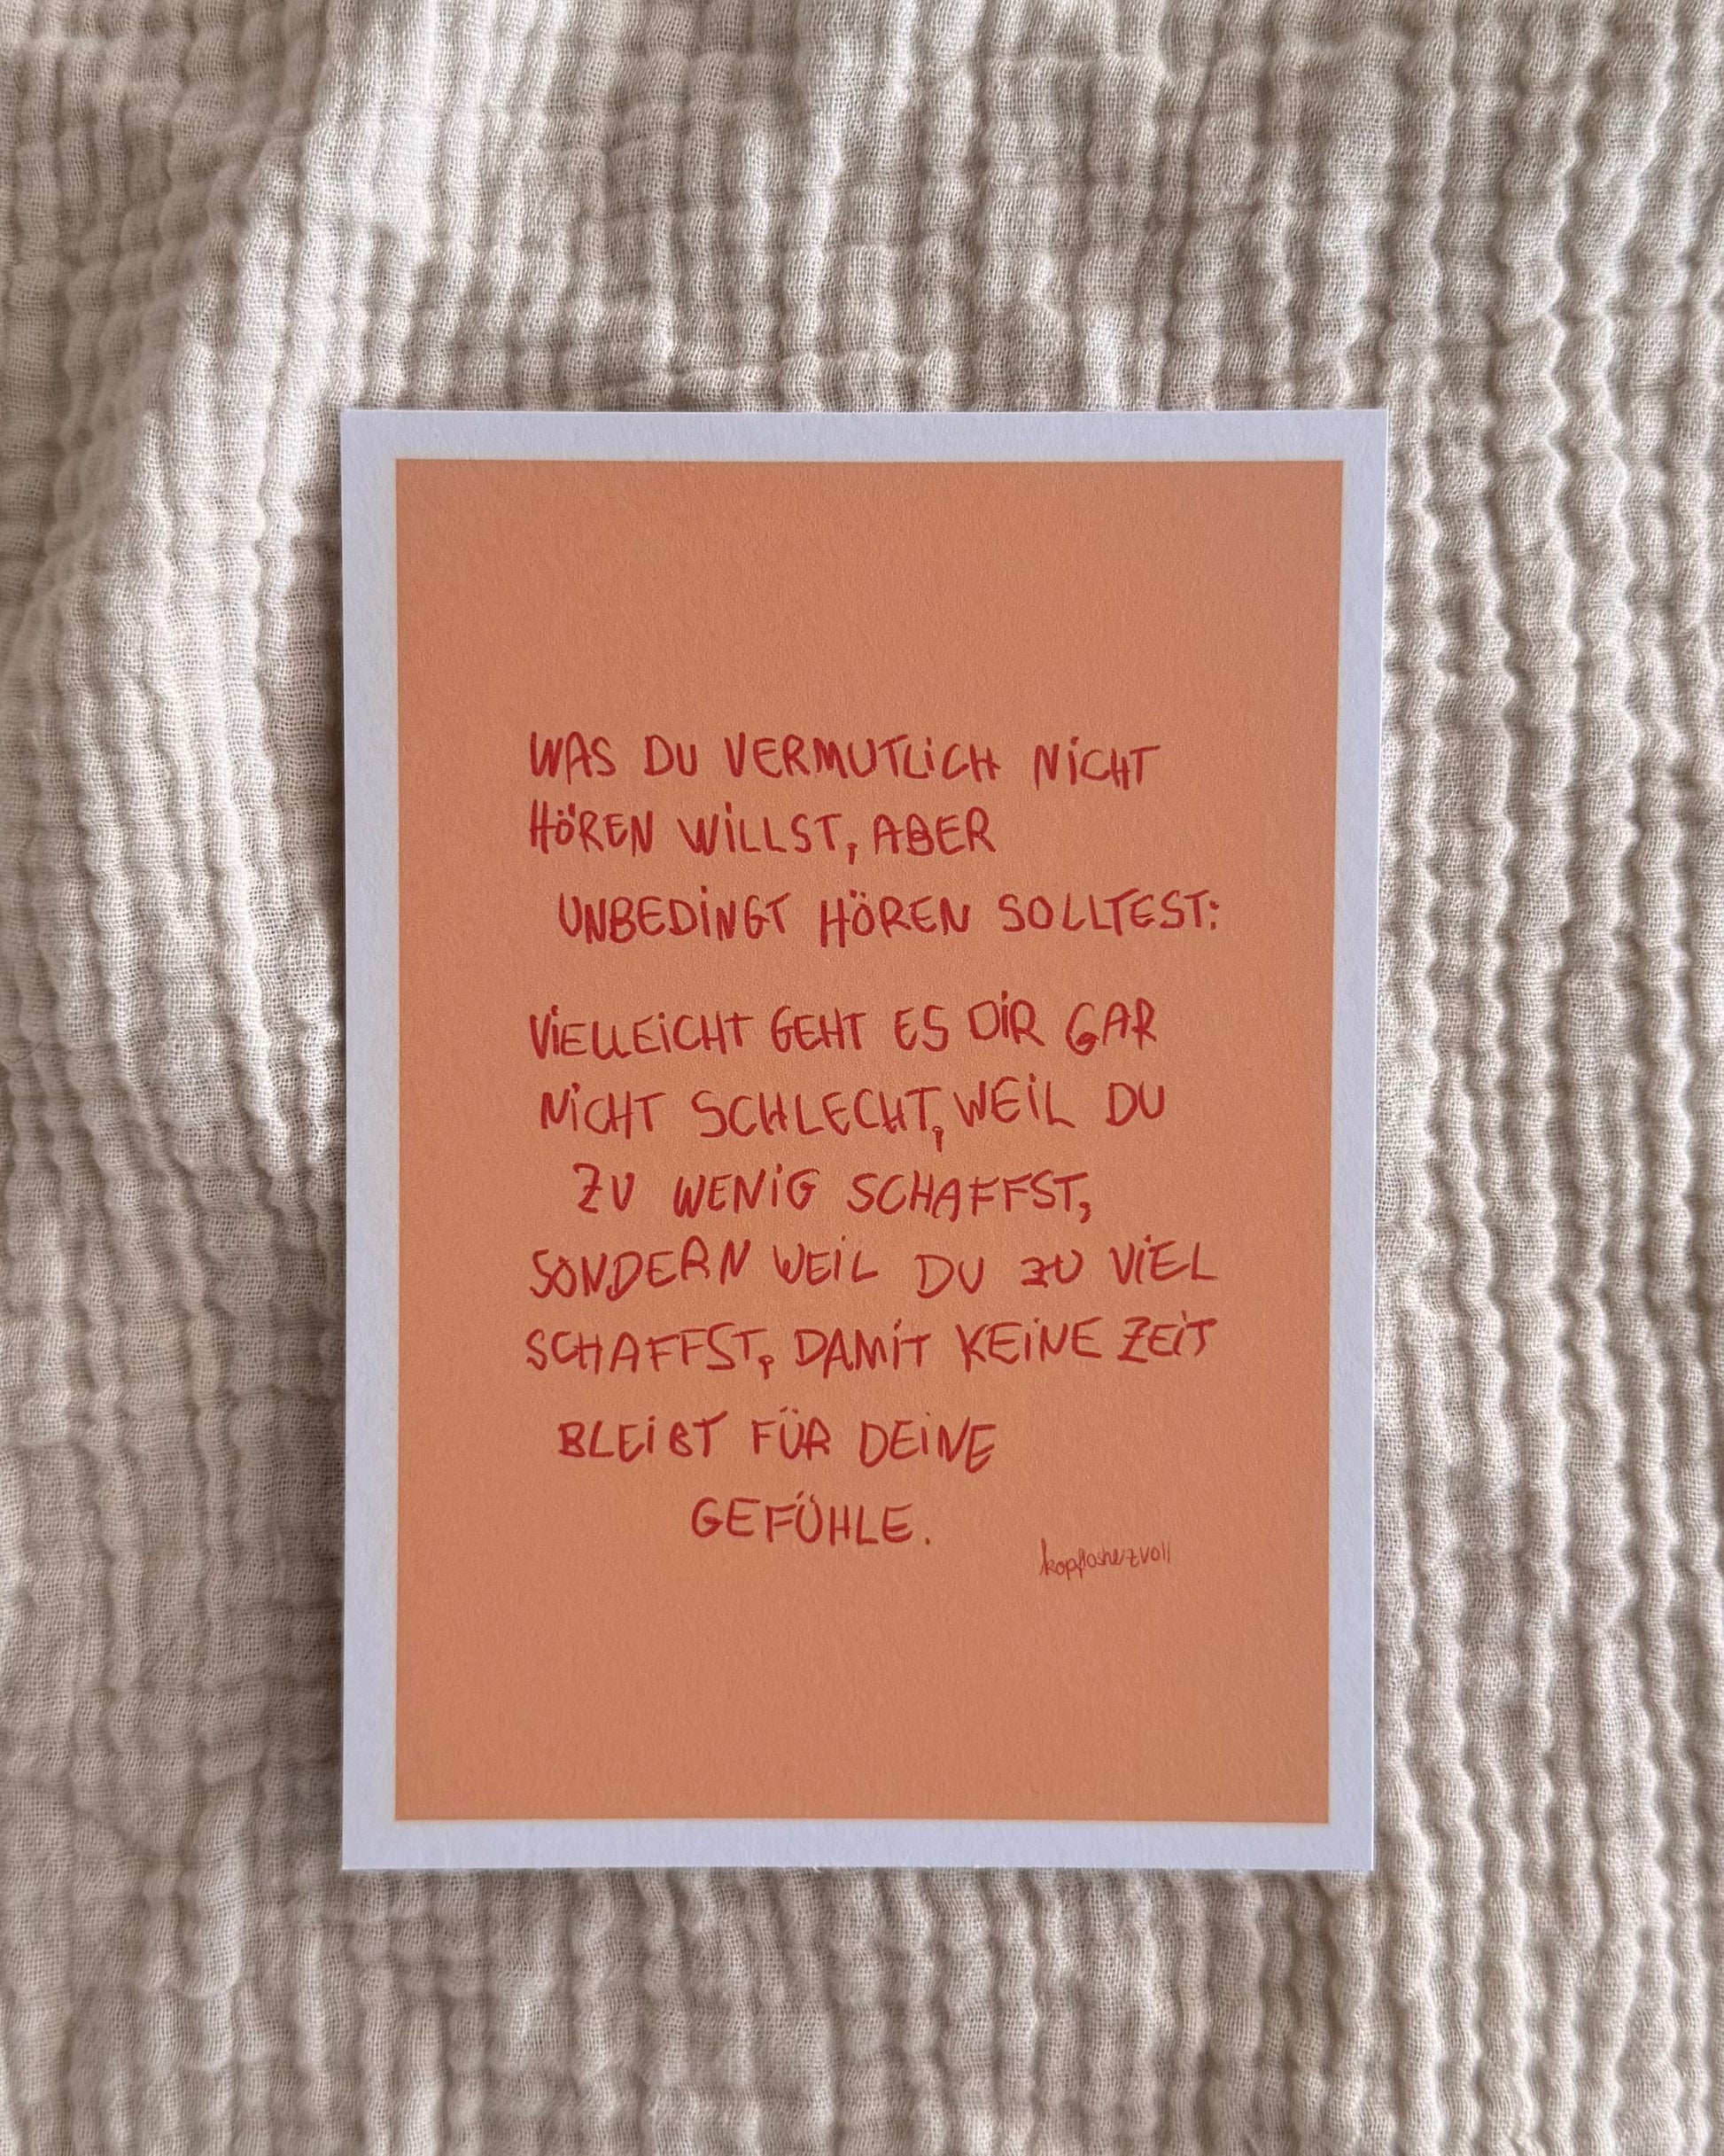 WAS DU VERMUTLICH NICHT
HÖREN WILLST, ABER
UNBEDINGT HÖREN SOLLTEST:
VIELLEICHT GEHT ES DIR GAR
NICHT SCHLECHT, WEIL DU
ZU WENIG SCHAFFST,
SONDERN WEIL DU ZU VIEL
SCHAFFST, DAMIT KEINE ZEIT
BLEIBT FÜR DEINE
GEFÜHLE.
kopflosherzvoll